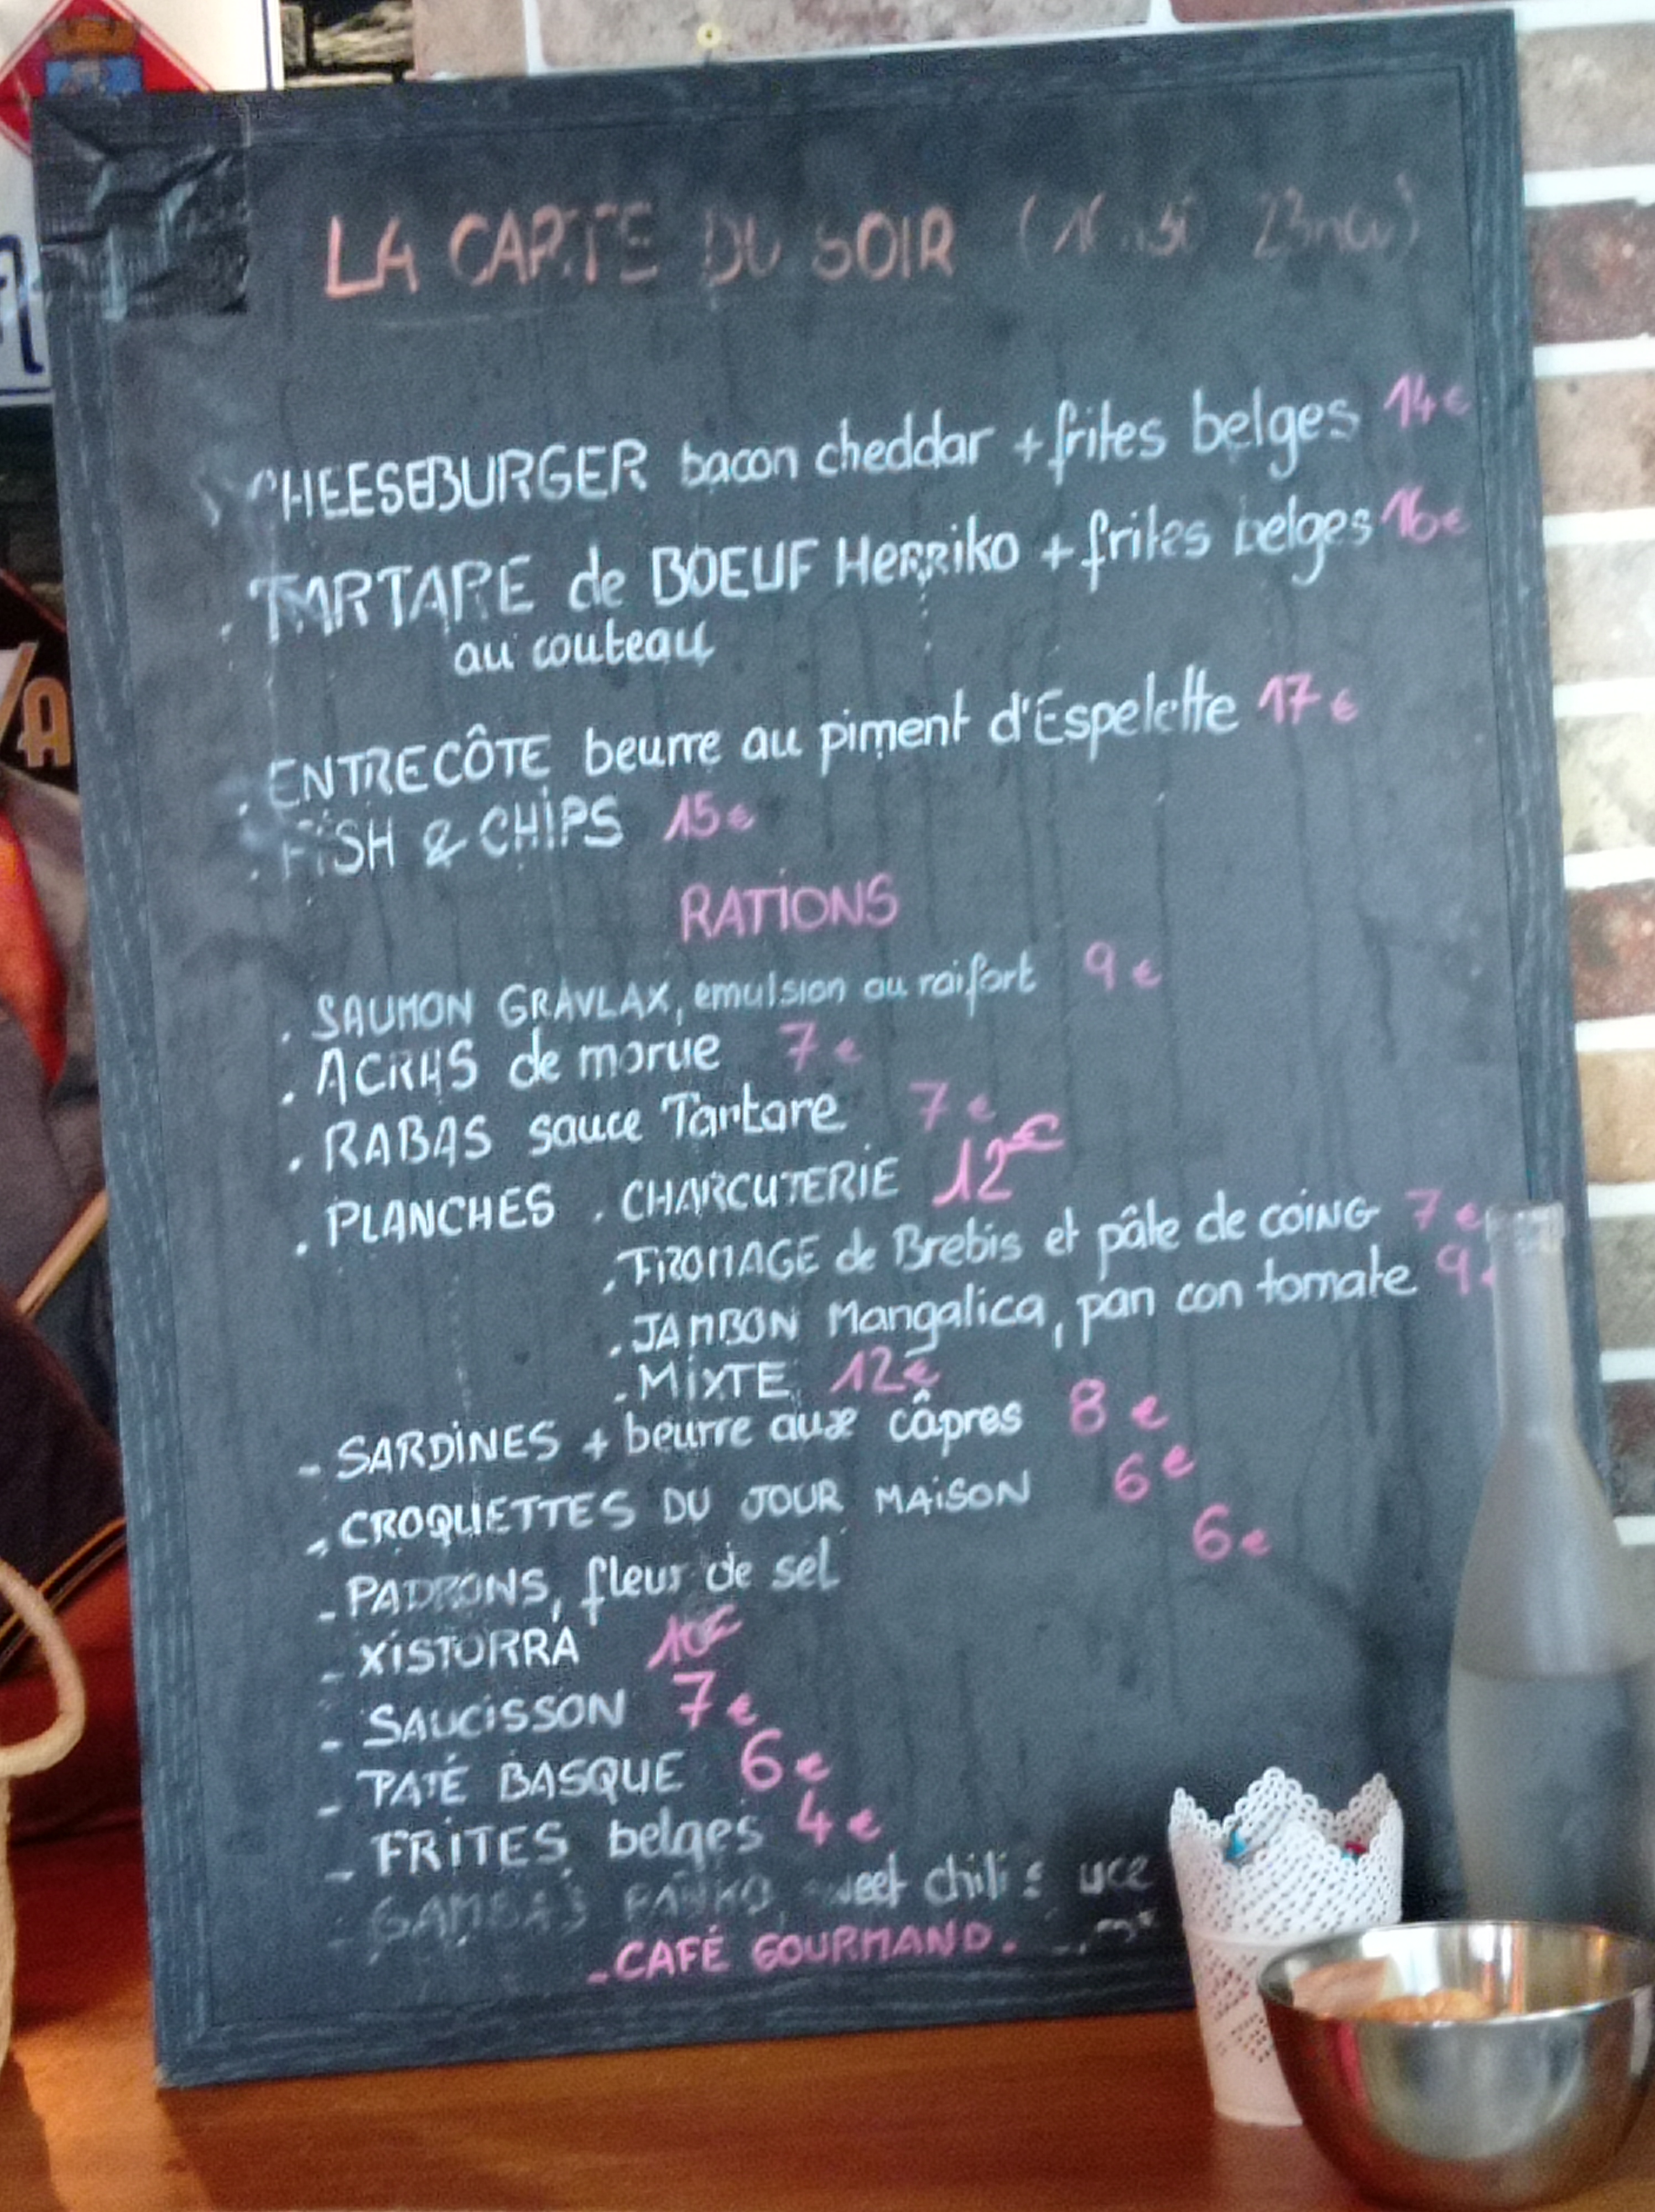 LA CARTE DU SOIR
CHEESEBURGER bacon cheddar + frites belges 14€
. TARTARE de BOEUF HERRiKO + frites belges 16€
au couteau
. ENTRECÔTE beurre au piment d'Espelette 17€
. FiSH & CHiPS 15€
RATiONS
. SAUMON GRAVLAX, emulsion au raifort 9€
. ACRAS de morue 7€
. RABAS sauce Tartare 7€
. PLANCHES . CHARCUTERiE 12€
. FROMAGE de Brebis et pâte de COiNG 7€
. JAMBON Mangalica, pan con tomate 9
. MiXTE 12€
- SARDiNES + beurre aux câpres 8€
- CROQUETTES DU JOUR MAiSON 6€
- PADRONS, fleur de sel 6€
- XiSTORRA 10€
- SAUCiSSON 7€
- PATÉ BASQUE 6€
- FRiTES belges 4€
- GAMBAS PANKO, sweet chili sauce
- CAFÉ GOURMAND.